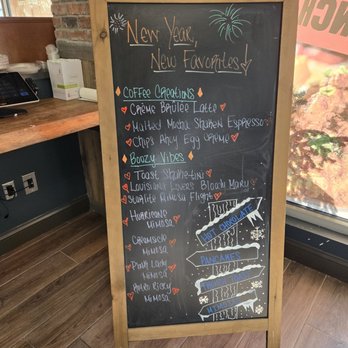 New Year,
New Favorites!
Coffee Creations
Crème Brûlée Latte
Malted Mocha Shaken Espresso
Chip's Ahoy Egg Creme
Boozy Vibes
Toast
Louisiana Lovers Bloody Mary
Sunrise Mimosa Flight
Hurricane
Mimosa
Creamsicle
Mimosa
Pink Lady
Mimosa
Mimosa
HOT CHOCOLATE
PANCAKES